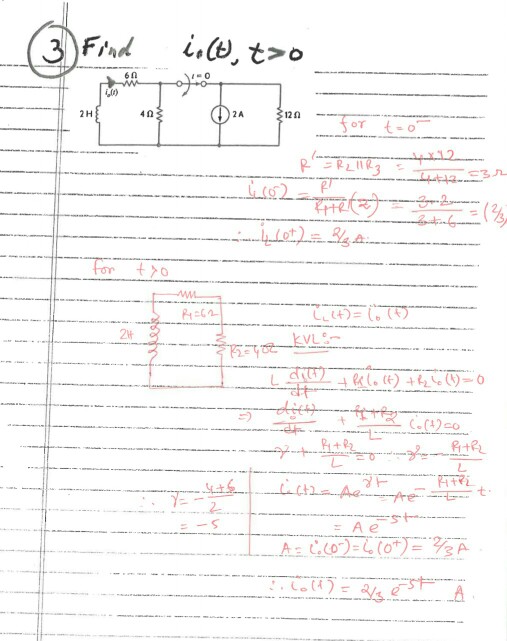 3 Find i₀(t), t>0
6Ω
t=0
i₀(t)
2H
4Ω
2A
12Ω
for t=0⁻
R' = R₂||R₃ = 4×12/4+12 = 3Ω
i_L(0⁻) = R'/R₁+R' (2) = 3·2/3+6 = (2/3)
∴ i_L(0⁺) = 2/3 A.
for t>0
R₁=6Ω
i_L(t) = i₀(t)
2H
R₂=4Ω
KVL:-
L di₀(t)/dt + R₁i₀(t) + R₂i₀(t) = 0
⇒ di₀(t)/dt + R₁+R₂/L i₀(t)=0
γ + R₁+R₂/L = 0 ∴ γ = - R₁+R₂/L
∴ γ = - 4+6/2
= -5
i₀(t) = Ae^γt = Ae^- R₁+R₂/L t.
= A e^-5t
A = i₀(0⁻) = i₀(0⁺) = 2/3 A.
∴ i₀(t) = 2/3 e^-5t A.